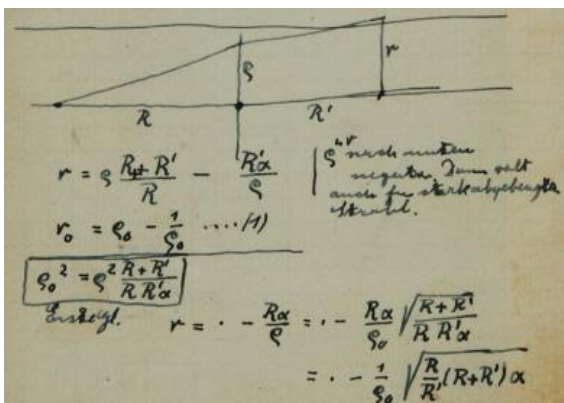 ρ
r
R
R'
r = ρ (R + R')/R - R'α/ρ
ρ u. r nach unten
negativ. Dann gilt
auch für stark abgebeugten
Strahl.
r₀ = ρ₀ - 1/ρ₀ .... (1)
ρ₀² = ρ² (R + R')/(R R'α)
r = · - Rα/ρ = · - Rα/ρ₀ √((R + R')/(R R'α))
= · - 1/ρ₀ √(R/R' (R + R') α)